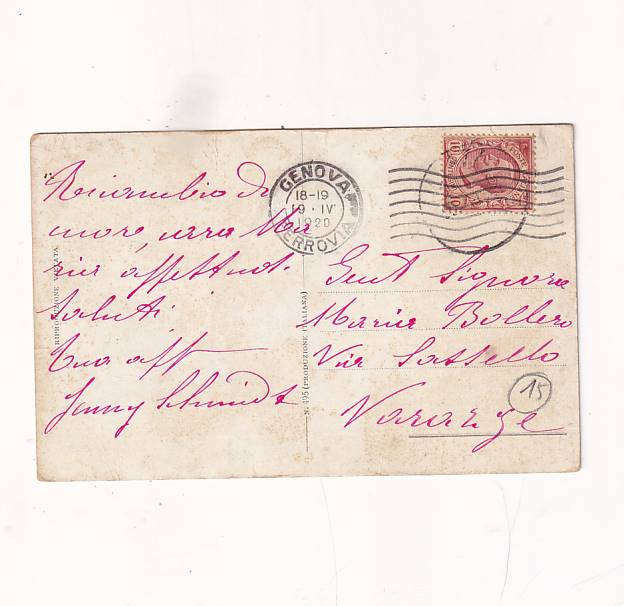 Ricambio di
cuore, cara Ma
ria affettuosi
saluti
tua aff
Jenny Schmidt
RIPRODUZIONE VIETATA
N. 495 (PRODUZIONE ITALIANA)
GENOVA
18-19
19 · IV
1920
FERROVIA
10 10
POSTE
Gent Signora
Maria Bollero
Via Sassello
Varazze
15